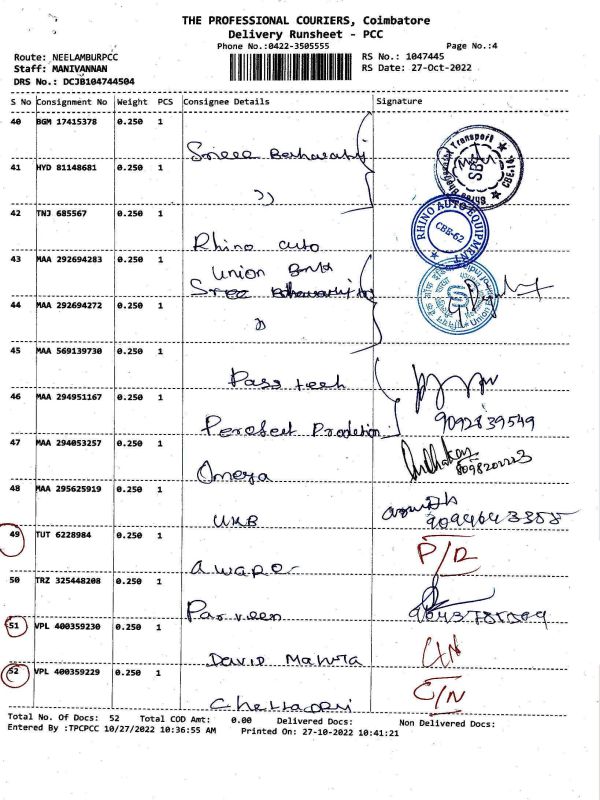 THE PROFESSIONAL COURIERS, Coimbatore
Delivery Runsheet - PCC
Phone No.:0422-3505555 Page No.:4
Route: NEELAMBURPCC RS No.: 1047445
Staff: MANIVANNAN RS Date: 27-Oct-2022
DRS No.: DCJB104744504
S No Consignment No Weight PCS Consignee Details Signature
40 BGM 17415378 0.250 1
41 HYD 81148681 0.250 1
42 TNJ 685567 0.250 1
Rhino auto
RHINO AUTO EQUIPMENT
CBE-62
43 MAA 292694283 0.250 1
Union Bank
44 MAA 292694272 0.250 1
45 MAA 569139730 0.250 1
Pass tech
46 MAA 294951167 0.250 1
9092839549
47 MAA 294053257 0.250 1
Omega
48 MAA 295625919 0.250 1
UKB
49 TUT 6228984 0.250 1
50 TRZ 325448208 0.250 1
Parveen
51 VPL 400359230 0.250 1
David
52 VPL 400359229 0.250 1
C/N
Total No. Of Docs: 52 Total COD Amt: 0.00 Delivered Docs: Non Delivered Docs:
Entered By :TPCPCC 10/27/2022 10:36:55 AM Printed On: 27-10-2022 10:41:21